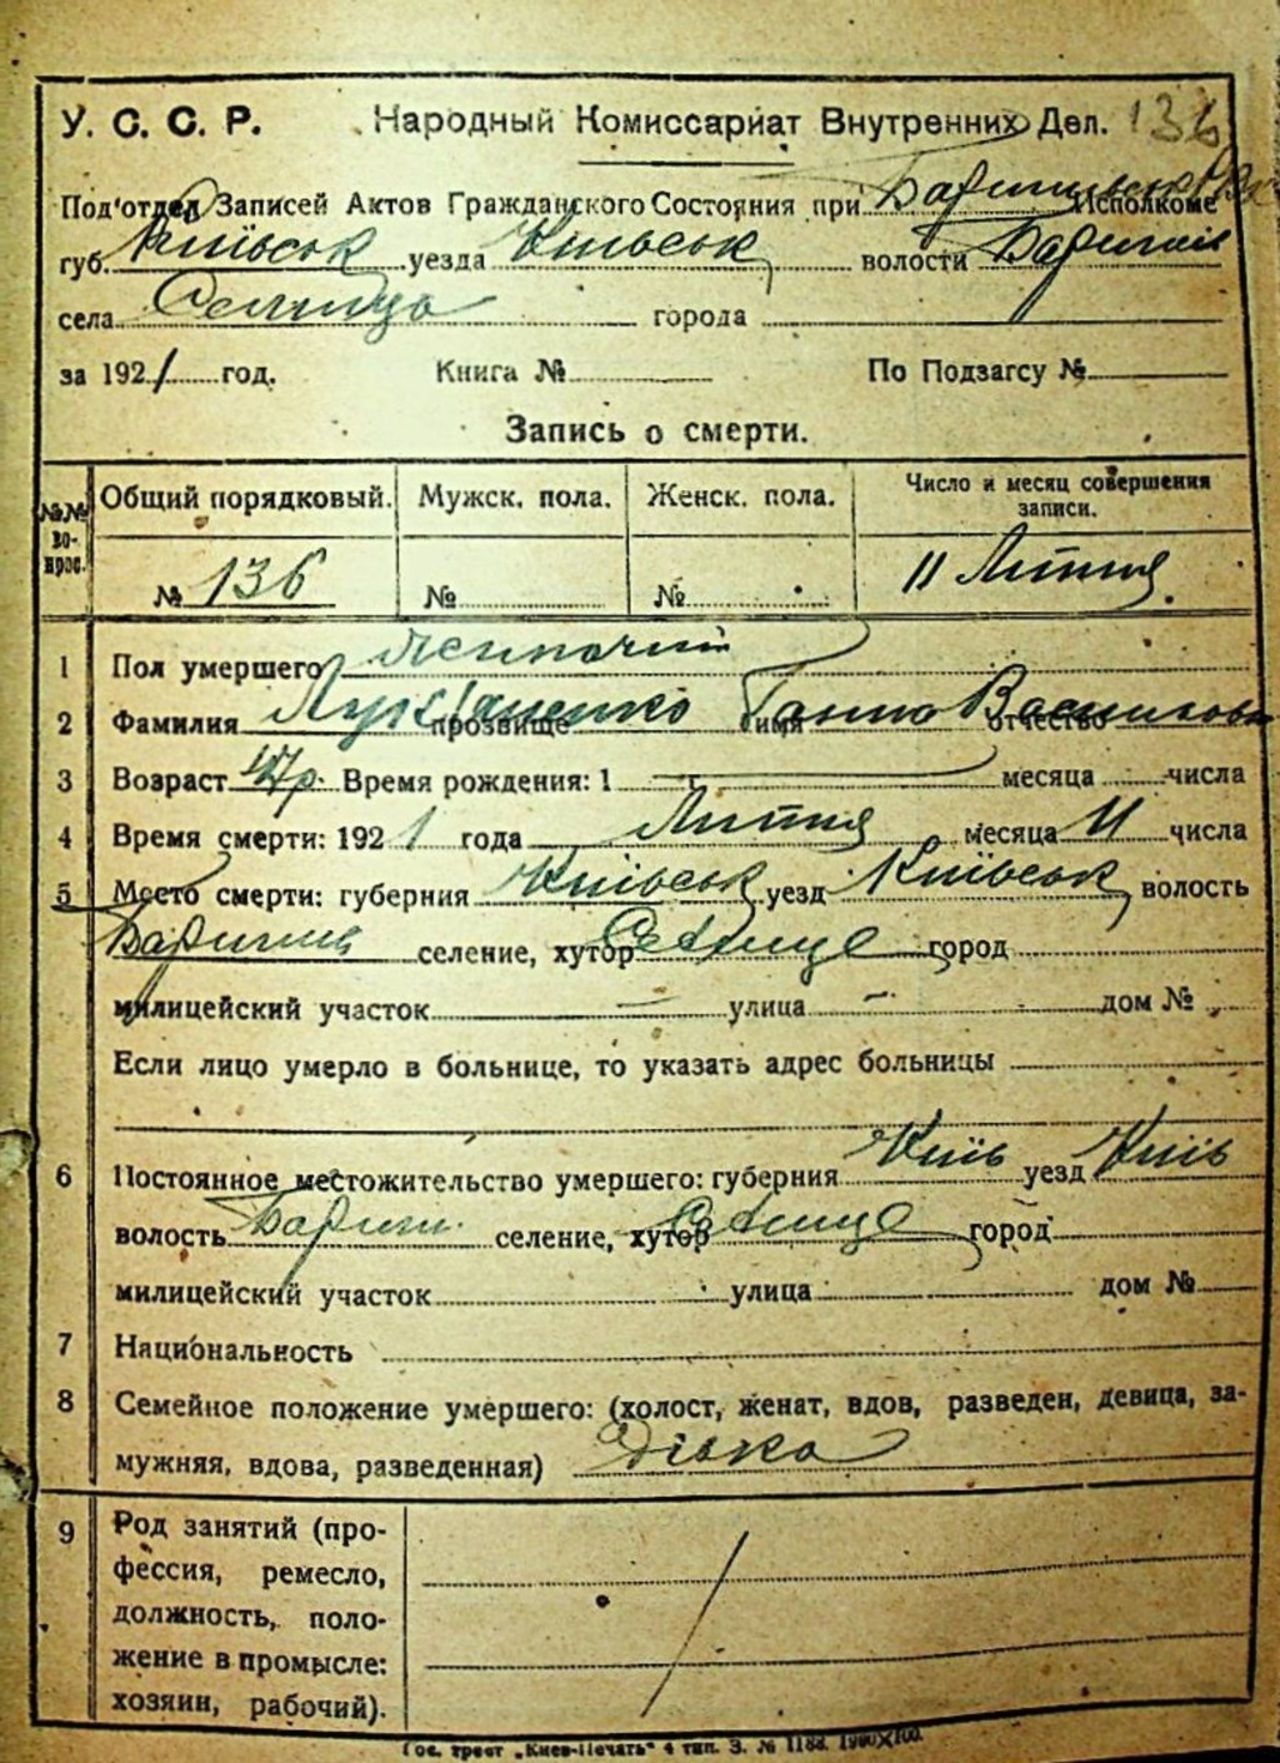 У. С. С. Р. Народный Комиссариат Внутренних Дел. 136
Под'отдел Записей Актов Гражданского Состояния при Исполкоме
губ. Київськ уезда Київськ волости Баришів
села Селище города
за 1921 год. Книга № По Подзагсу №
Запись о смерти.
№№ вопрос. Общий порядковый. Мужск. пола. Женск. пола. Число и месяц совершения записи.
№ 136 № № 11 Липня
1 Пол умершего жіночий
2 Фамилия прозвище Лукьяненко имя Ганна отчество Василівна
3 Возраст р. Время рождения: 1 месяца числа
4 Время смерти: 1921 года Липня месяца 11 числа
5 Место смерти: губерния Київськ уезд Київськ волость
Баришів селение, хутор Селище город
милицейский участок улица дом №
Если лицо умерло в больнице, то указать адрес больницы
6 Постоянное местожительство умершего: губерния Київ уезд Київ
волость Бариш. селение, хутор Селище город
милицейский участок улица дом №
7 Национальность
8 Семейное положение умершего: (холост, женат, вдов, разведен, девица, за-
мужняя, вдова, разведенная) Дівка
9 Род занятий (про-
фессия, ремесло,
должность, поло-
жение в промысле:
хозяин, рабочий).
Гос. трест „Киев-Печать" 4 тип. З. № 1188.